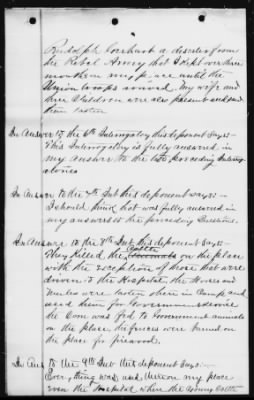 Rudolph Earhart a deserter from
the Rebel Army that I kept over three
months on my place until the
Union troops arrived. My wife and
three children were also present and saw
them taken
In Answer to the 6th Interrogatory this deponent says:
This Interrogatory is fully answered in
my answer to the two preceding Interrog-
atories
In Answer to the 7th Int this deponent says:
I should think that was fully answered in
my answers to the preceding Questions.
In Answer to the 8th Int this deponent Says:
Cattle
They killed the on the place
with the exception of those that were
driven to the Hospital, the Horses and
Mules were taken there in Camp, and
used them for Government Service
the Corn was fed to Government animals
on the place, the fences were burned
on the place for firewood.
In Ans to the 9th Int this deponent Says:
Every thing was used then on my place
even the Hospital where the young Cattle